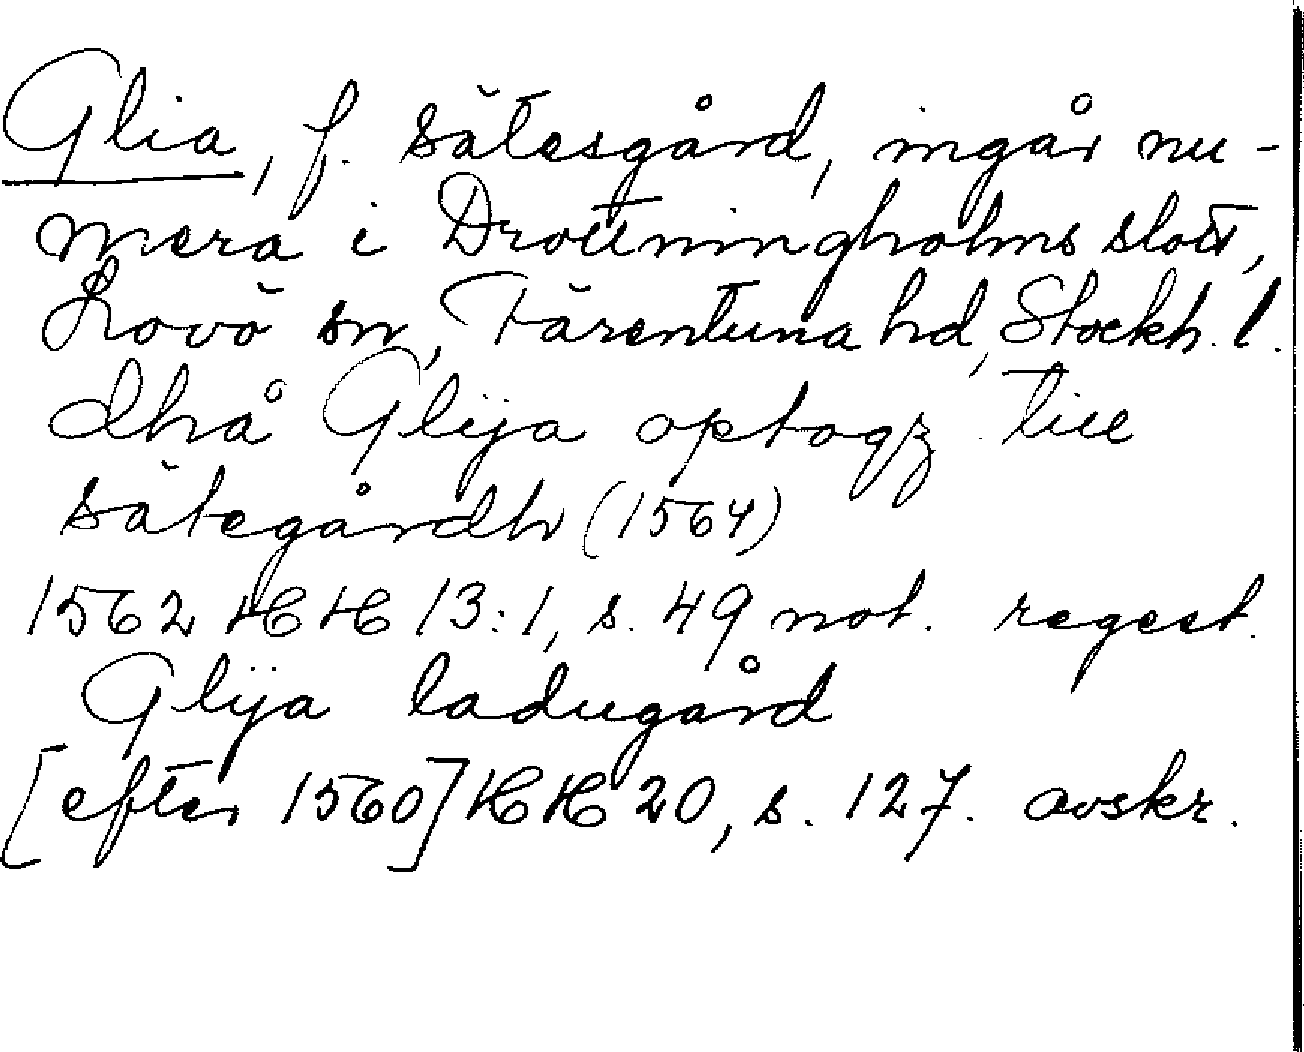 Glia, f. sätesgård, ingår nu-
mera i Drottningholms slott,
Lovö sn, Färentuna hd, Stockh. l.
dhå Glija optogz till
sätegårdh (1564)
1562 HH 13:1, s. 49 not. regest.
Glija ladugård
[efter 1560] HH 20, s. 127. avskr.